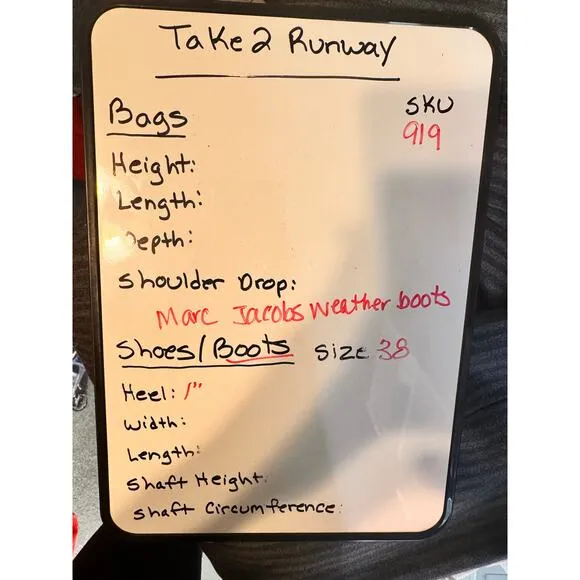 Take 2 Runway
Bags
SKU
919
Height:
Length:
Depth:
Shoulder Drop:
Marc Jacobs Weather boots
Shoes/Boots Size 38
Heel: 1"
Width:
Length:
Shaft Height:
Shaft Circumference: